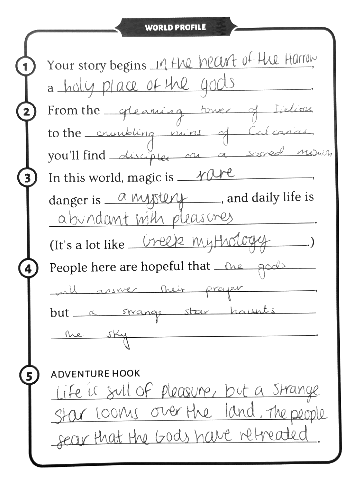 WORLD PROFILE
1 Your story begins in the heart of the Harrow
a holy place of the gods.
2 From the gleaming tower of
to the crumbling ruins of
you'll find disciples on a sacred mission
3 In this world, magic is rare,
danger is a mystery, and daily life is
abundant with pleasures.
(It's a lot like Greek mythology.)
4 People here are hopeful that the gods
will answer their prayer,
but a strange star haunts
the sky.
5 ADVENTURE HOOK
Life is full of pleasure, but a strange
star looms over the land. The people
fear that the Gods have retreated.